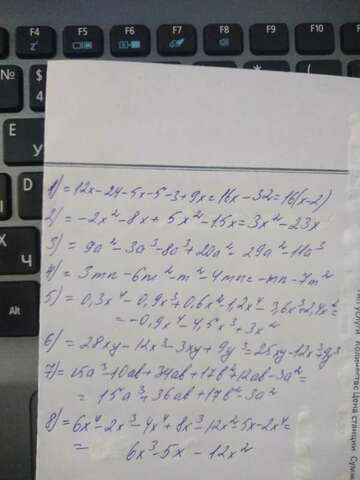 F4 F5 F6 F7 F8 F9 F10
№ $ 4
Е У
Ч
Alt
1) = 12x - 24 - 5x - 5 - 3 + 9x = 16x - 32 = 16(x-2)
2) = -2x² - 8x + 5x² - 15x = 3x² - 23x
3) = 9a² - 3a³ - 8a³ + 20a² = 29a² - 11a³
4) = 3mn - 6m² - m² - 4mn = -mn - 7m²
5) = 0,3x⁴ - 0,9x³ + 0,6x² - 1,2x⁴ - 3,6x³ + 2,4x² =
= -0,9x⁴ - 4,5x³ + 3x²
6) = 28xy - 12x³ - 3xy + 9y³ = 25xy - 12x³ + 9y³
7) = 15a³ - 10ab + 34ab + 17b² + 12ab - 3a² =
= 15a³ + 36ab + 17b² - 3a²
8) = 6x⁴ - 2x³ - 4x⁴ + 8x³ - 12x² - 5x - 2x⁴ =
= 6x³ - 5x - 12x²
Количество Цена станции